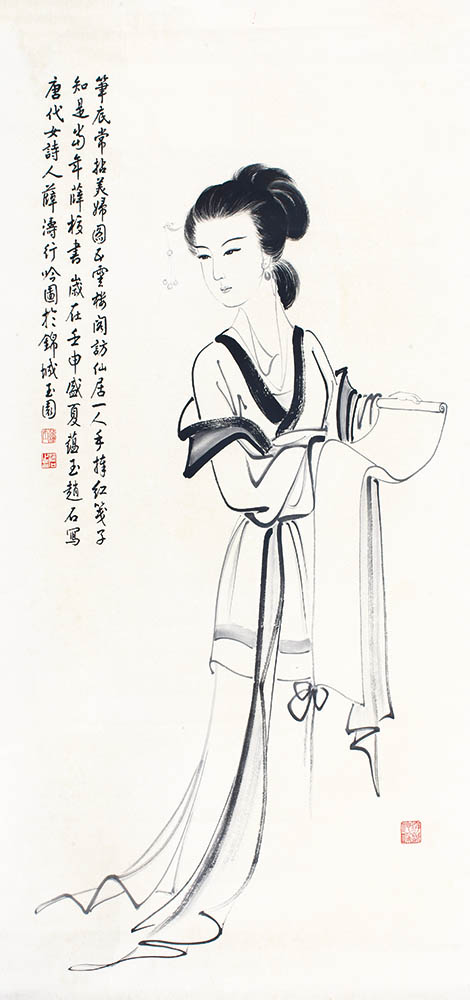 筆底常拈美婦圖五雲樓閣訪仙居一人手擇紅箋子
知是當年薛校書歲在壬申盛夏蘊玉趙石寫
唐代女詩人薛濤行吟圖於錦城玉園